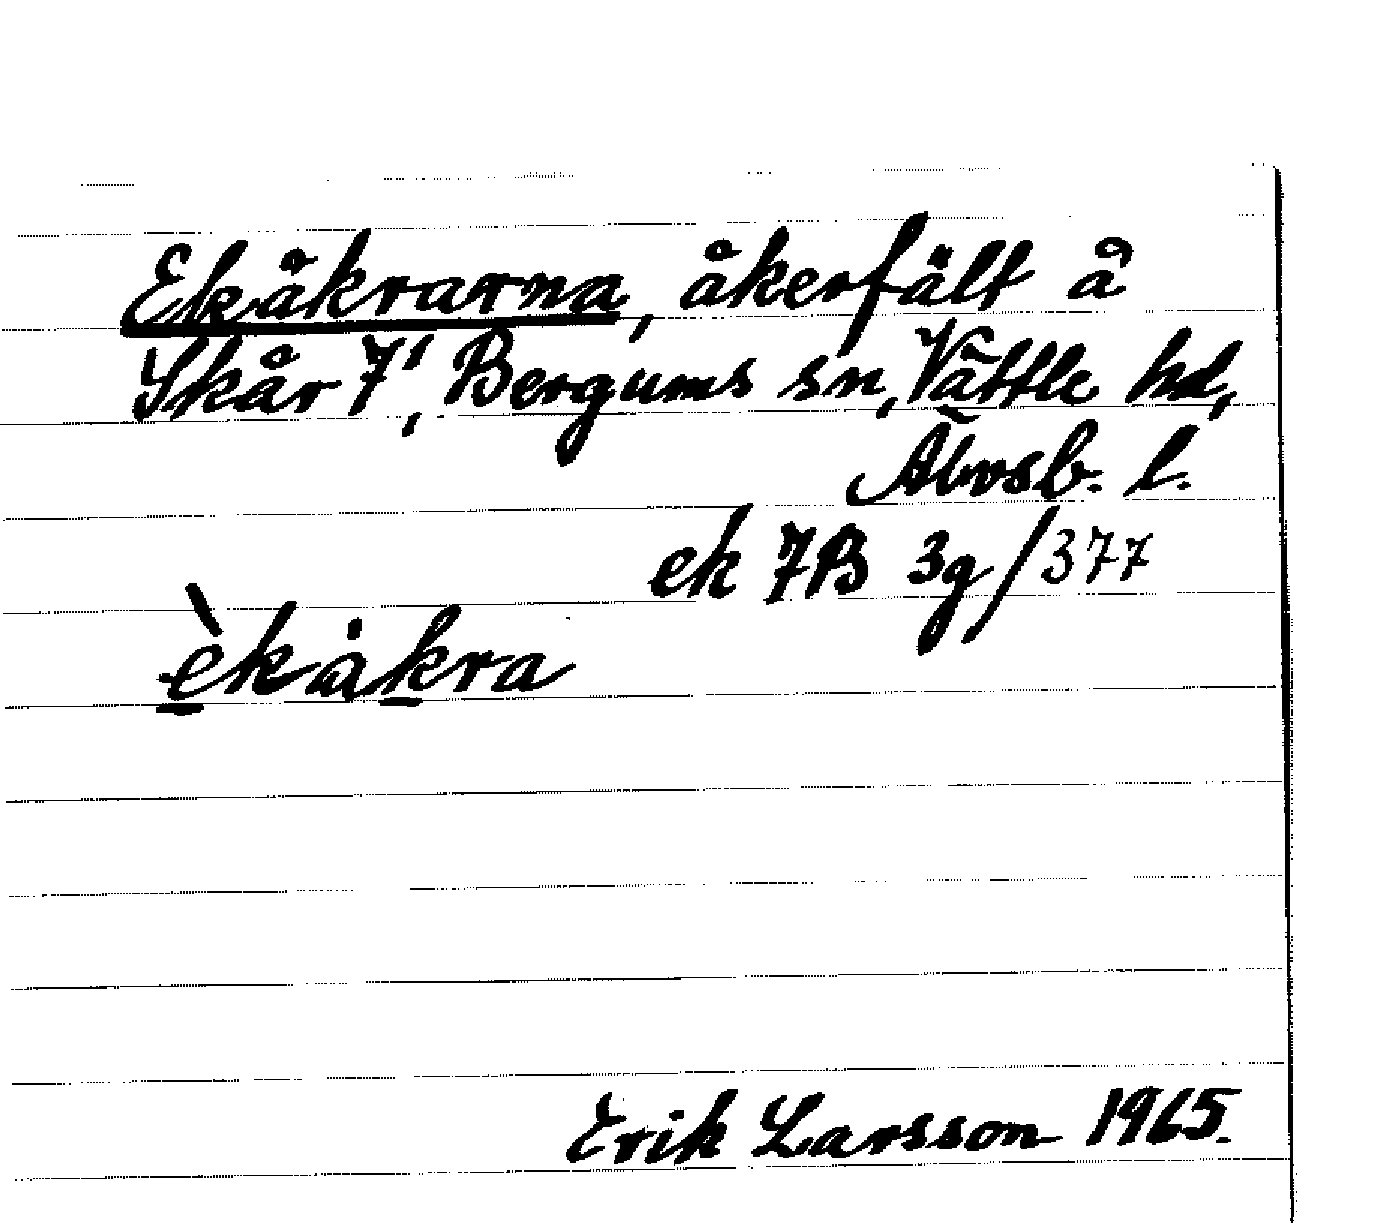 Ekåkrarna, åkerfält å
Skår 7¹, Bergums sn, Vättle hd,
Älvsb. l.
ek 7B 3g/377
èkåkra
Erik Larsson 1965.